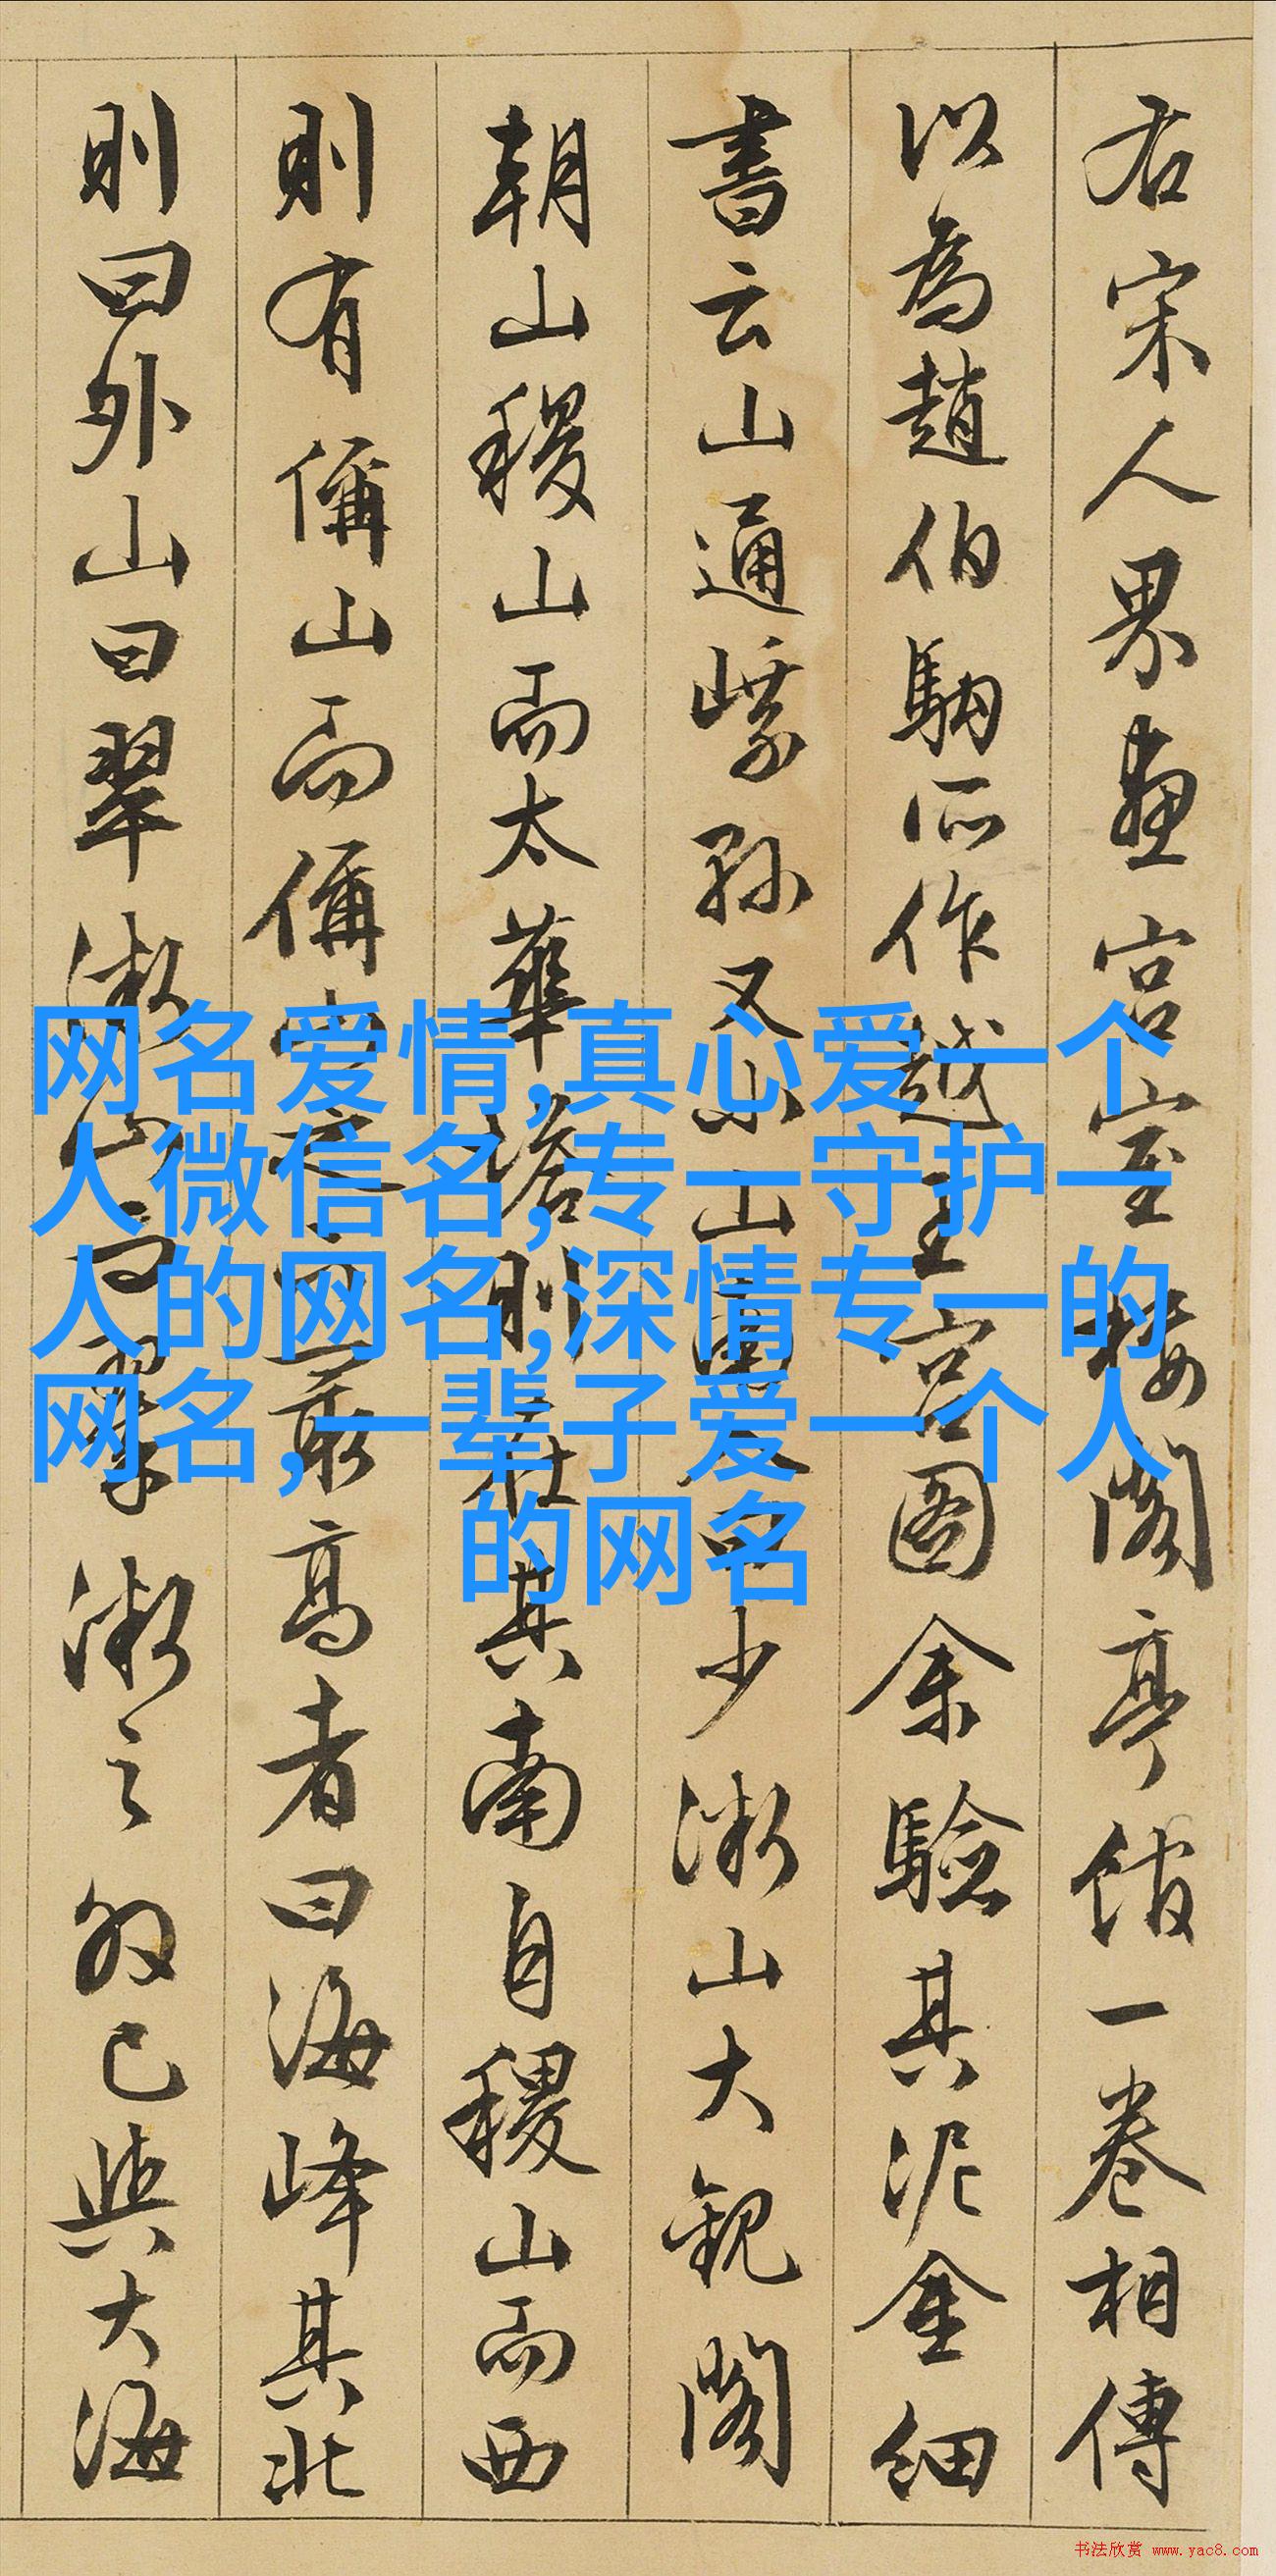 右宋人界畫宮室樓閣亭館一卷相傳
以為趙伯駒所作越王宮圖余驗其泥金細
書云山通 孫又 山 少微山大觀閣
朝山稷山而太華 則在其南自稷山而西
則有偁山而偁 之 最高者曰海峰其北
則曰外山曰翠微 翠微之外已與大海
网名爱情,真心爱一个
人微信名,专一守护一
人的网名,深情专一的
网名,一辈子爱一个人
的网名
书法欣赏 www.yac8.com